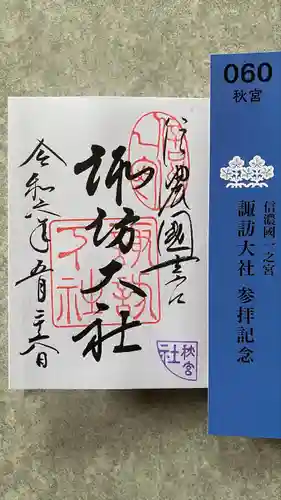 信濃國一之宮
諏訪大社
令和六年五月二十六日
諏訪
下社
秋宮
社
060
秋宮
信濃國一之宮
諏訪大社 参拝記念